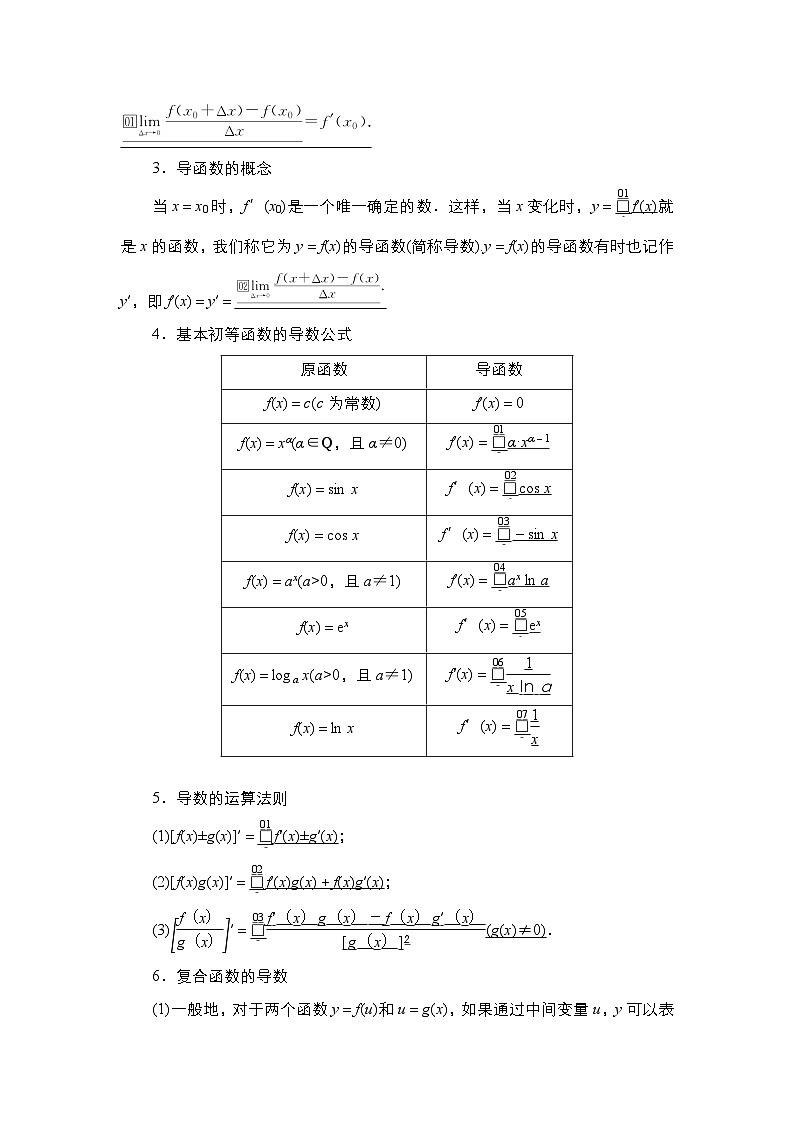 01 lim Δx→0 f(x0+Δx)-f(x0)/Δx=f′(x0).
3.导函数的概念
当 x=x0 时,f′(x0)是一个唯一确定的数.这样,当 x 变化时,y=01□f′(x)就
是 x 的函数,我们称它为 y=f(x)的导函数(简称导数).y=f(x)的导函数有时也记作
y′,即 f′(x)=y′=02 lim Δx→0 f(x+Δx)-f(x)/Δx.
4.基本初等函数的导数公式
原函数 导函数
f(x)=c(c 为常数) f′(x)=0
f(x)=x^α(α∈Q,且 α≠0) f′(x)=01□α·x^(α-1)
f(x)=sin x f′(x)=02□cos x
f(x)=cos x f′(x)=03□-sin x
f(x)=a^x(a>0,且 a≠1) f′(x)=04□a^x ln a
f(x)=e^x f′(x)=05□e^x
f(x)=log_a x(a>0,且 a≠1) f′(x)=06□1/(x ln a)
f(x)=ln x f′(x)=07□1/x
5.导数的运算法则
(1)[f(x)±g(x)]′=01□f′(x)±g′(x);
(2)[f(x)g(x)]′=02□f′(x)g(x)+f(x)g′(x);
(3)[f(x)/g(x)]′=03□f′(x)g(x)-f(x)g′(x)/[g(x)]²(g(x)≠0).
6.复合函数的导数
(1)一般地,对于两个函数 y=f(u)和 u=g(x),如果通过中间变量 u,y 可以表